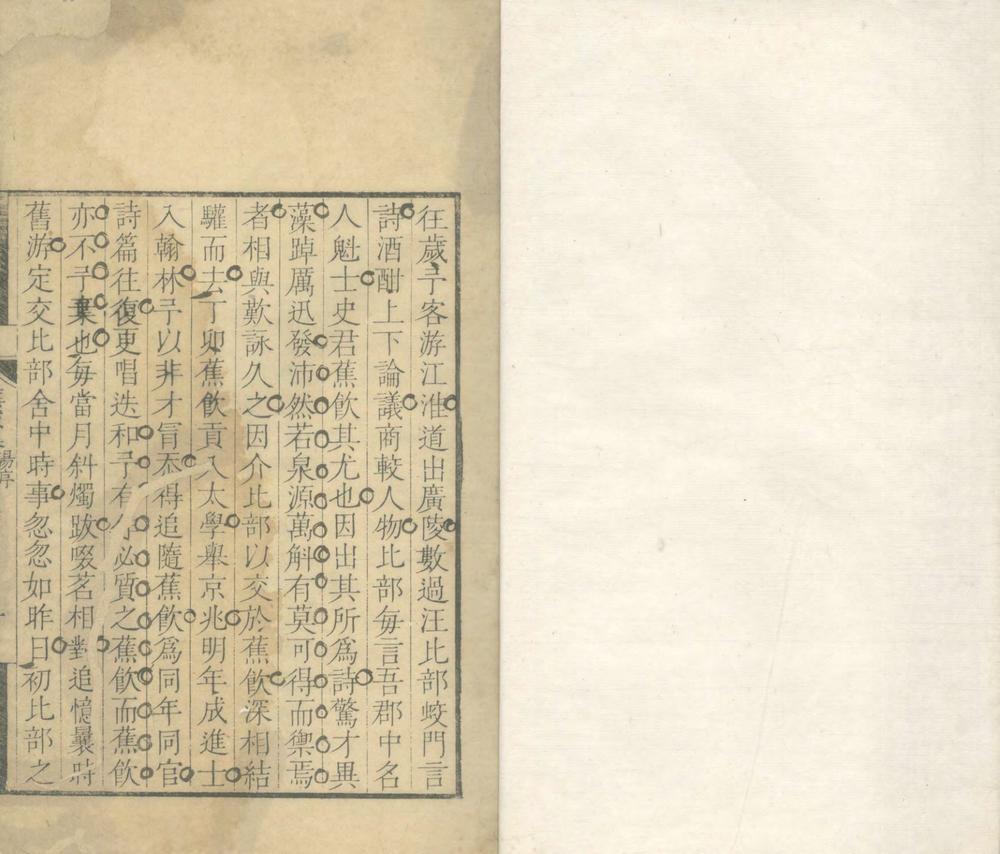 往歲予客游江淮道出廣陵數過汪比部蛟門言
詩酒酣上下論議商較人物比部每言吾郡中名
人魁士史君蕉飲其尤也因出其所爲詩驚才異
藻踔厲迅發沛然若泉源萬斛有莫可得而禦焉
者相與歎詠久之因介比部以交於蕉飲深相結
驩而去丁卯蕉飲貢入太學舉京兆明年成進士
入翰林予以非才冐忝得追隨蕉飲爲同年同官
詩篇往復更唱迭和予有必質之蕉飲而蕉飲
亦不予棄也每當月斜燭跋啜茗相對追憶曩時
舊游定交比部舍中時事忽忽如昨日初比部之